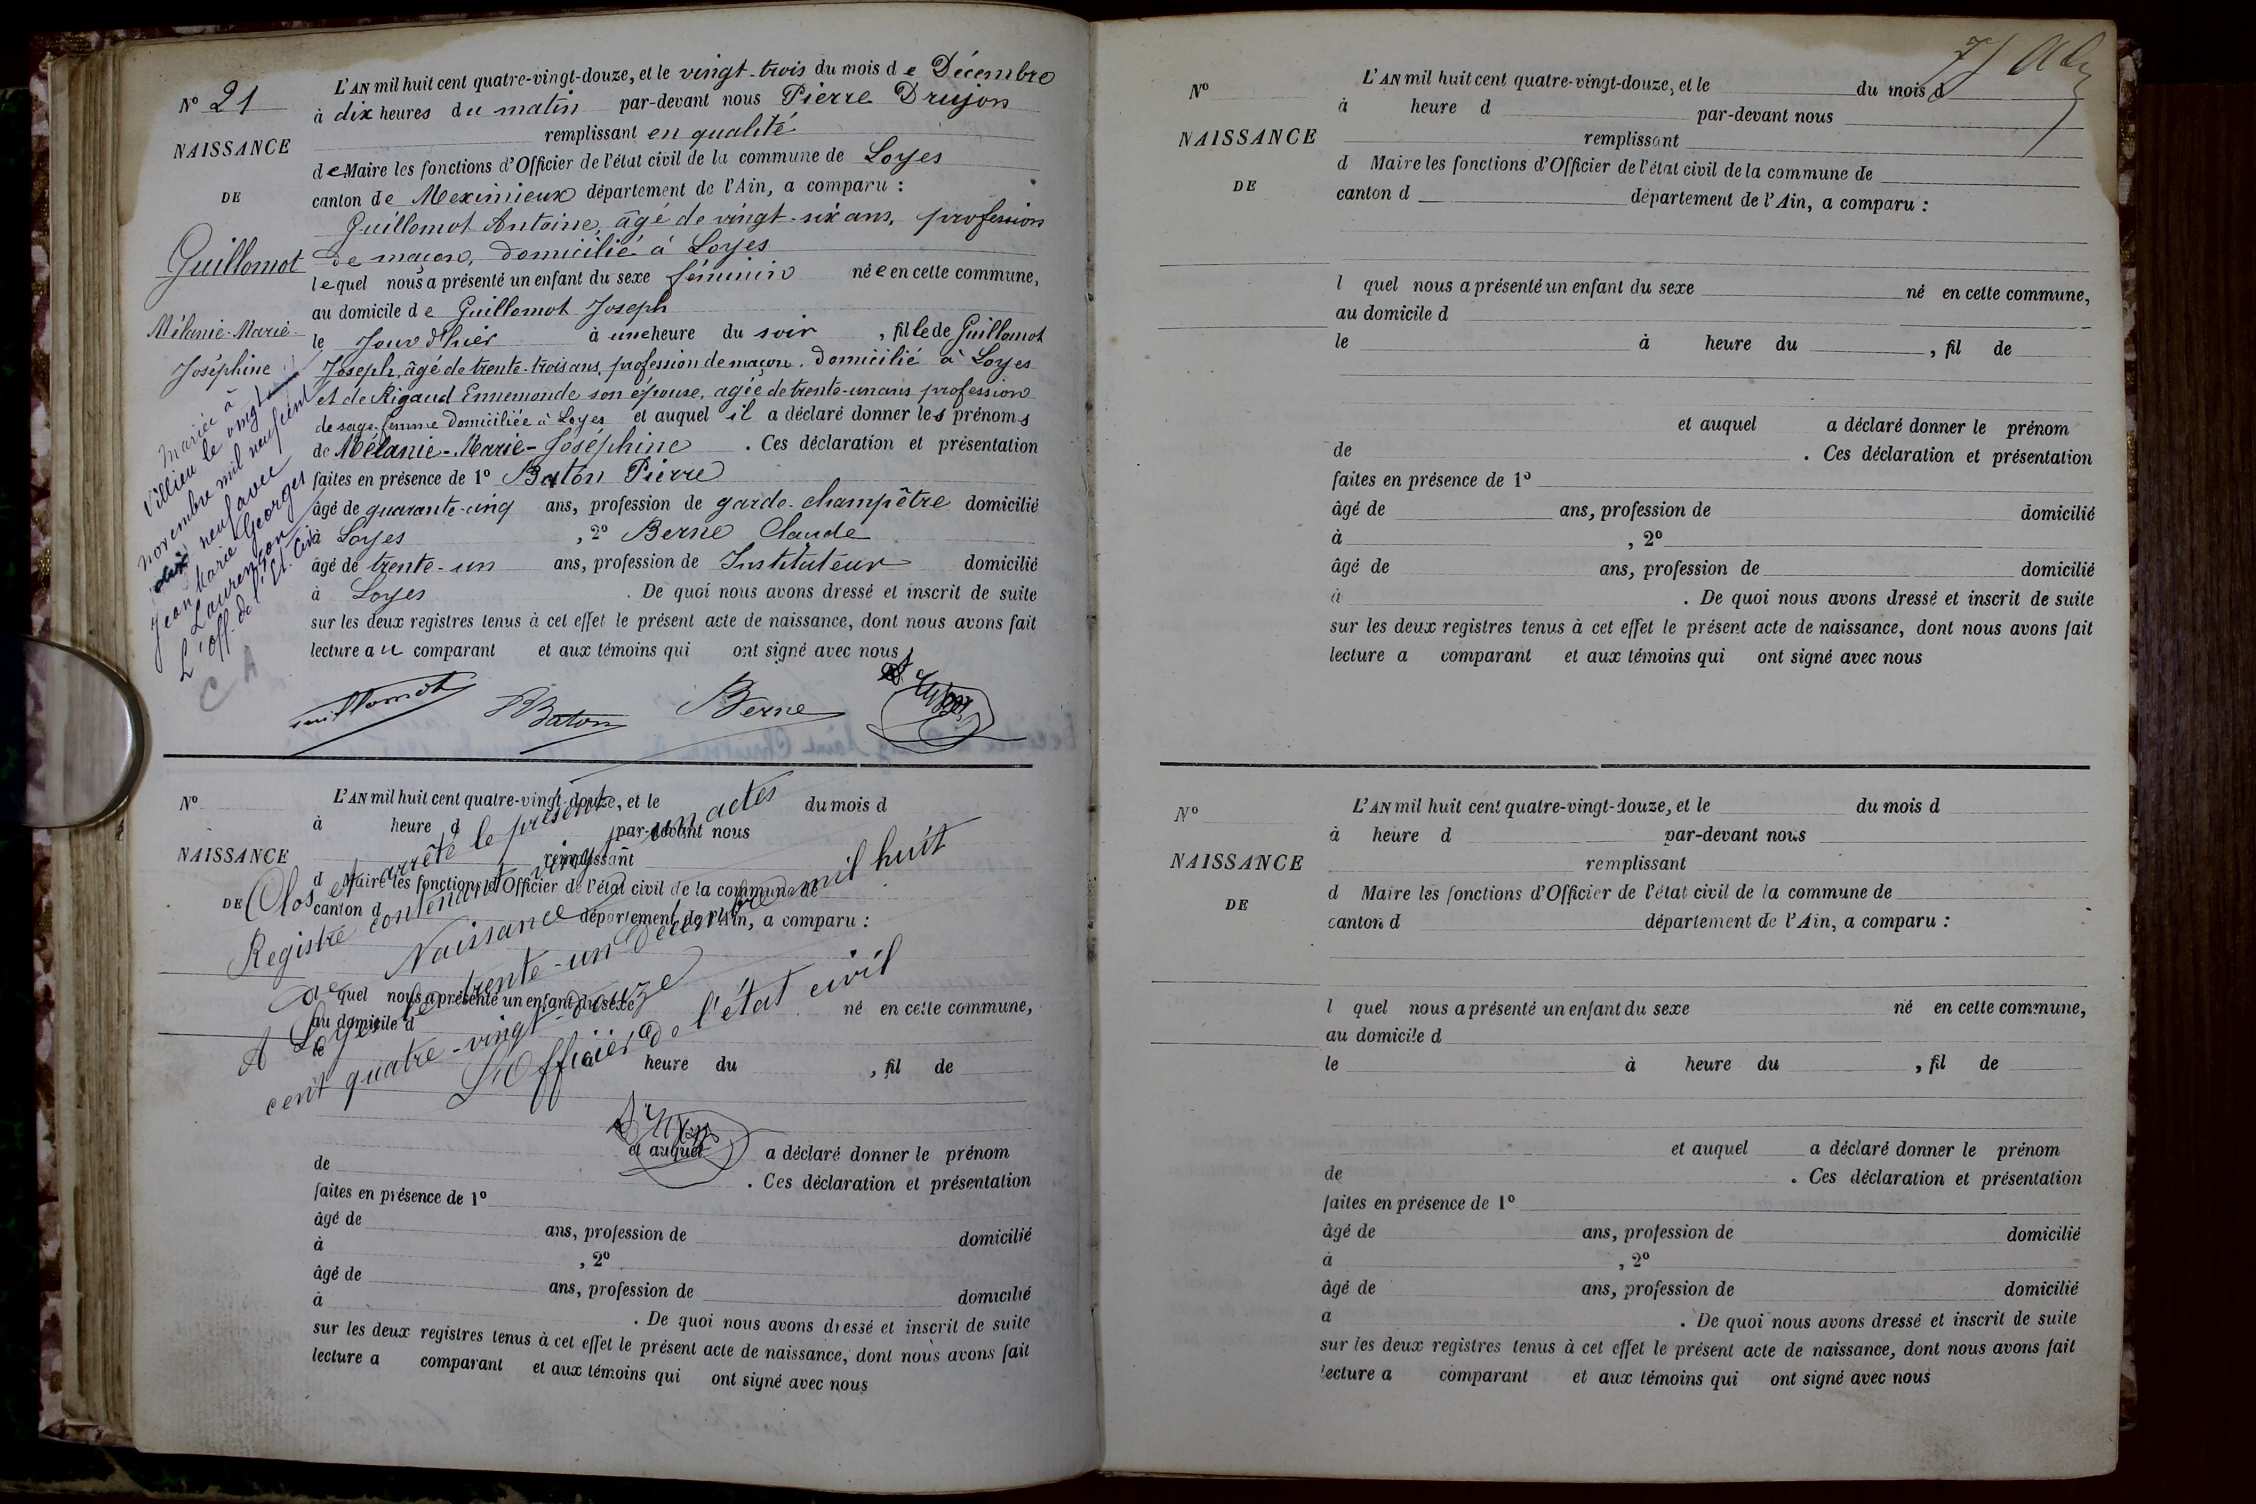 N° 21
NAISSANCE
DE
Guillomot
Mélanie-Marie-
Joséphine
L'AN mil huit cent quatre-vingt-douze, et le vingt-trois du mois de Décembre
à dix heures du matin par-devant nous Pierre Drujon
remplissant en qualité
de Maire les fonctions d'Officier de l'état civil de la commune de Loyes
canton de Meximieux département de l'Ain, a comparu :
Guillomot Antoine, âgé de vingt-six ans, profession
de maçon, domicilié à Loyes
lequel nous a présenté un enfant du sexe féminin née en cette commune,
au domicile de Guillomot Joseph
le Jour d'hier à une heure du soir, fille de Guillomot
Joseph, âgé de trente-trois ans, profession de maçon, domicilié à Loyes
et de Rigaud Ennemonde son épouse, agée de trente-un ans profession
de sage-femme domiciliée à Loyes et auquel il a déclaré donner les prénoms
de Mélanie-Marie-Joséphine . Ces déclaration et présentation
faites en présence de 1° Baton Pierre
âgé de quarante-cinq ans, profession de garde-champêtre domicilié
à Loyes , 2° Berne Claude
âgé de trente-un ans, profession de Instituteur domicilié
à Loyes . De quoi nous avons dressé et inscrit de suite
sur les deux registres tenus à cet effet le présent acte de naissance, dont nous avons fait
lecture au comparant et aux témoins qui ont signé avec nous
Mariée à
Villieu le vingt
novembre mil neuf cent
neuf avec
Jean Marie Georges
Laurençon
L'Off. de l'Et. Civil
C A
Guillomot Baton Berne
N° L'AN mil huit cent quatre-vingt-douze, et le du mois d
à heure d par-devant nous
NAISSANCE
remplissant
d Maire les fonctions d'Officier de l'état civil de la commune de
DE
canton d département de l'Ain, a comparu :
l quel nous a présenté un enfant du sexe né en cette commune,
au domicile d
le à heure du , fil de
et auquel a déclaré donner le prénom
de . Ces déclaration et présentation
faites en présence de 1°
âgé de ans, profession de domicilié
à , 2°
âgé de ans, profession de domicilié
à . De quoi nous avons dressé et inscrit de suite
sur les deux registres tenus à cet effet le présent acte de naissance, dont nous avons fait
lecture a comparant et aux témoins qui ont signé avec nous
Clos et arrêté le présent
Registre contenant vingt-un actes
de Naissance
A Loyes le trente-un décembre mil huit
cent quatre-vingt-douze
L'Officier de l'état civil
N° L'AN mil huit cent quatre-vingt-douze, et le du mois d
à heure d par-devant nous
NAISSANCE
remplissant
d Maire les fonctions d'Officier de l'état civil de la commune de
DE
canton d département de l'Ain, a comparu :
l quel nous a présenté un enfant du sexe né en cette commune,
au domicile d
le à heure du , fil de
et auquel a déclaré donner le prénom
de . Ces déclaration et présentation
faites en présence de 1°
âgé de ans, profession de domicilié
à , 2°
âgé de ans, profession de domicilié
à . De quoi nous avons dressé et inscrit de suite
sur les deux registres tenus à cet effet le présent acte de naissance, dont nous avons fait
lecture a comparant et aux témoins qui ont signé avec nous
N° L'AN mil huit cent quatre-vingt-douze, et le du mois d
à heure d par-devant nous
NAISSANCE
remplissant
d Maire les fonctions d'Officier de l'état civil de la commune de
DE
canton d département de l'Ain, a comparu :
l quel nous a présenté un enfant du sexe né en cette commune,
au domicile d
le à heure du , fil de
et auquel a déclaré donner le prénom
de . Ces déclaration et présentation
faites en présence de 1°
âgé de ans, profession de domicilié
à , 2°
âgé de ans, profession de domicilié
a . De quoi nous avons dressé et inscrit de suite
sur les deux registres tenus à cet effet le présent acte de naissance, dont nous avons fait
lecture a comparant et aux témoins qui ont signé avec nous